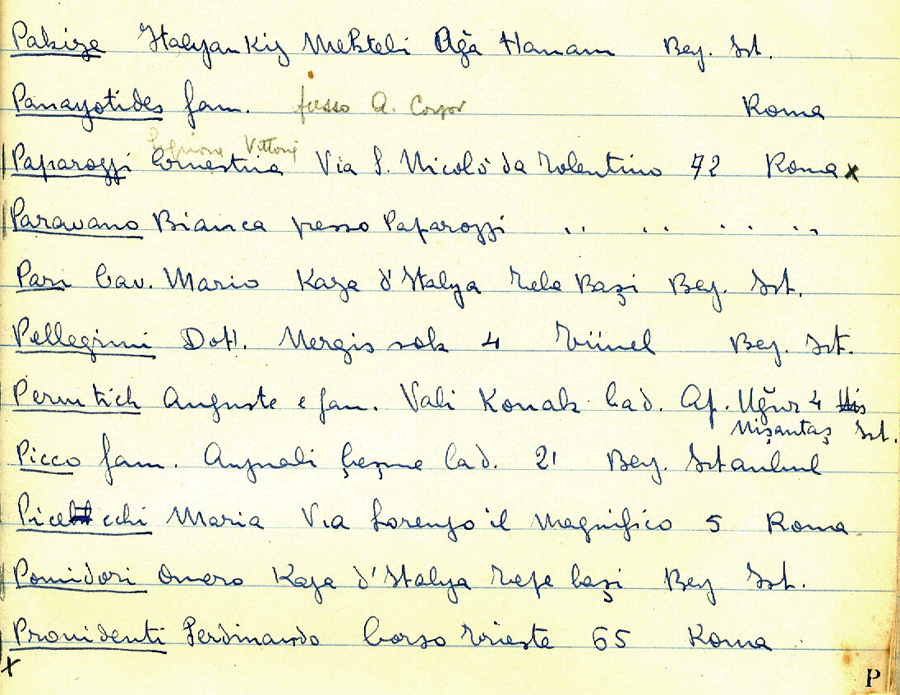 Pakize Italyan Kiz Mektebi Ağa Hamam Bey. Ist.
Panayotides fam. presso A. Roma
Signora Vittoria
Paparozzi Ernestina Via S. Nicolò da Tolentino 72 Roma x
Paravano Bianca presso Paparozzi " " " "
Pari Cav. Mario Kaza d'Italya Tebe Başi Bey. Ist.
Pellegrini Dott. Nergis sok 4 Tünel Bey. Ist.
Pervitich Auguste e fam. Vali Konak Cad. Ap. Uğur 4
Nişantaş Ist.
Picco fam. Aynali Çeşme Cad. 21 Bey. Istanbul
Picecchi Maria Via Lorenzo il Magnifico 5 Roma
Pomidori Omero Kaza d'Italya Tepe başi Bey Ist.
Providenti Ferdinando Corso Trieste 65 Roma
x
P